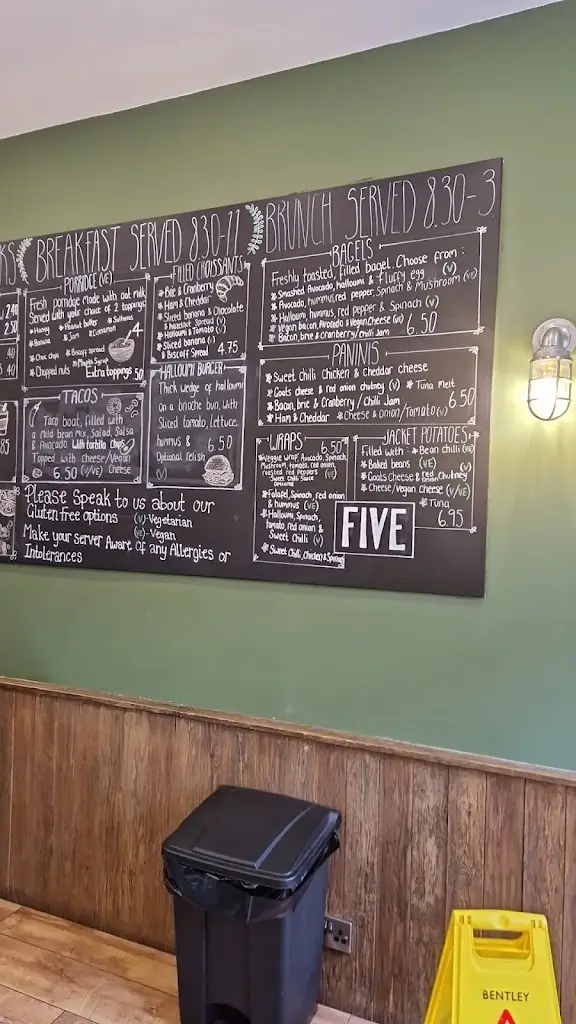 KS
2.40
2.50
.40
.40
85
BREAKFAST SERVED 8.30-11
PORRIDGE (VE)
Fresh porridge made with oat milk
Served with your choice of 2 toppings
* Honey * Peanut butter * Sultanas
* Banana * Jam * Cinnamon
* Choc chips * Biscoff spread
* Chopped nuts * Maple Syrup
4
Extra toppings 50
FILLED CROISSANTS
* Brie & Cranberry
* Ham & Cheddar
* Sliced banana & Chocolate
& hazelnut Spread (V)
* Halloumi & Tomato (V)
* Sliced banana (V)
& Biscoff Spread 4.75
TACOS
Taco boat, filled with
a mild bean mix, Salad, Salsa
& Avocado with tortilla chips
Topped with Cheese/Vegan
6.50 (V/VE) Cheese
HALLOUMI BURGER
Thick wedge of halloumi
on a brioche bun, with
Sliced tomato, lettuce,
hummus &
Optional relish
6.50
(V)
Please Speak to us about our
Gluten free options (V)-Vegetarian
(VE)-Vegan
Make your server Aware of any Allergies or
Intolerances
BRUNCH SERVED 8.30-3
BAGELS
Freshly toasted, filled bagel. Choose from:
* Smashed Avocado, halloumi & fluffy egg (V)
* Avocado, hummus, red pepper, Spinach & Mushroom (VE)
* Halloumi, hummus, red pepper & Spinach (V)
* Vegan bacon, Avocado & Vegan Cheese (VE)
* Bacon, brie & cranberry/chilli Jam 6.50
PANINIS
* Sweet chilli Chicken & Cheddar cheese
* Goats cheese & red onion chutney (V) * Tuna Melt
* Bacon, brie & Cranberry / Chilli Jam 6.50
* Ham & Cheddar * Cheese & Onion/Tomato (V)
WRAPS 6.50
* Veggie wrap, Avocado, Spinach,
Mushroom, tomato, red onion,
roasted red peppers (VE)
Sweet Chilli Sauce
* Falafel, Spinach, red onion
& hummus (VE)
* Halloumi, Spinach,
tomato, red onion &
Sweet Chilli (V)
* Sweet Chilli, Chicken & Spinach
JACKET POTATOES
Filled with: * Bean chilli (VE)
* Baked beans (VE)
* Goats Cheese & red onion Chutney (V)
* Cheese/vegan Cheese (V/VE)
* Tuna
6.95
FIVE
BENTLEY